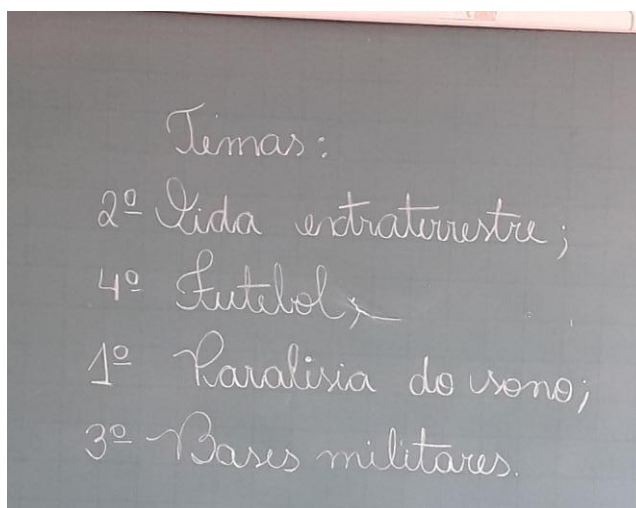 Temas:
2º Vida extraterrestre;
4º Futebol;
1º Paralisia do sono;
3º Bases militares.